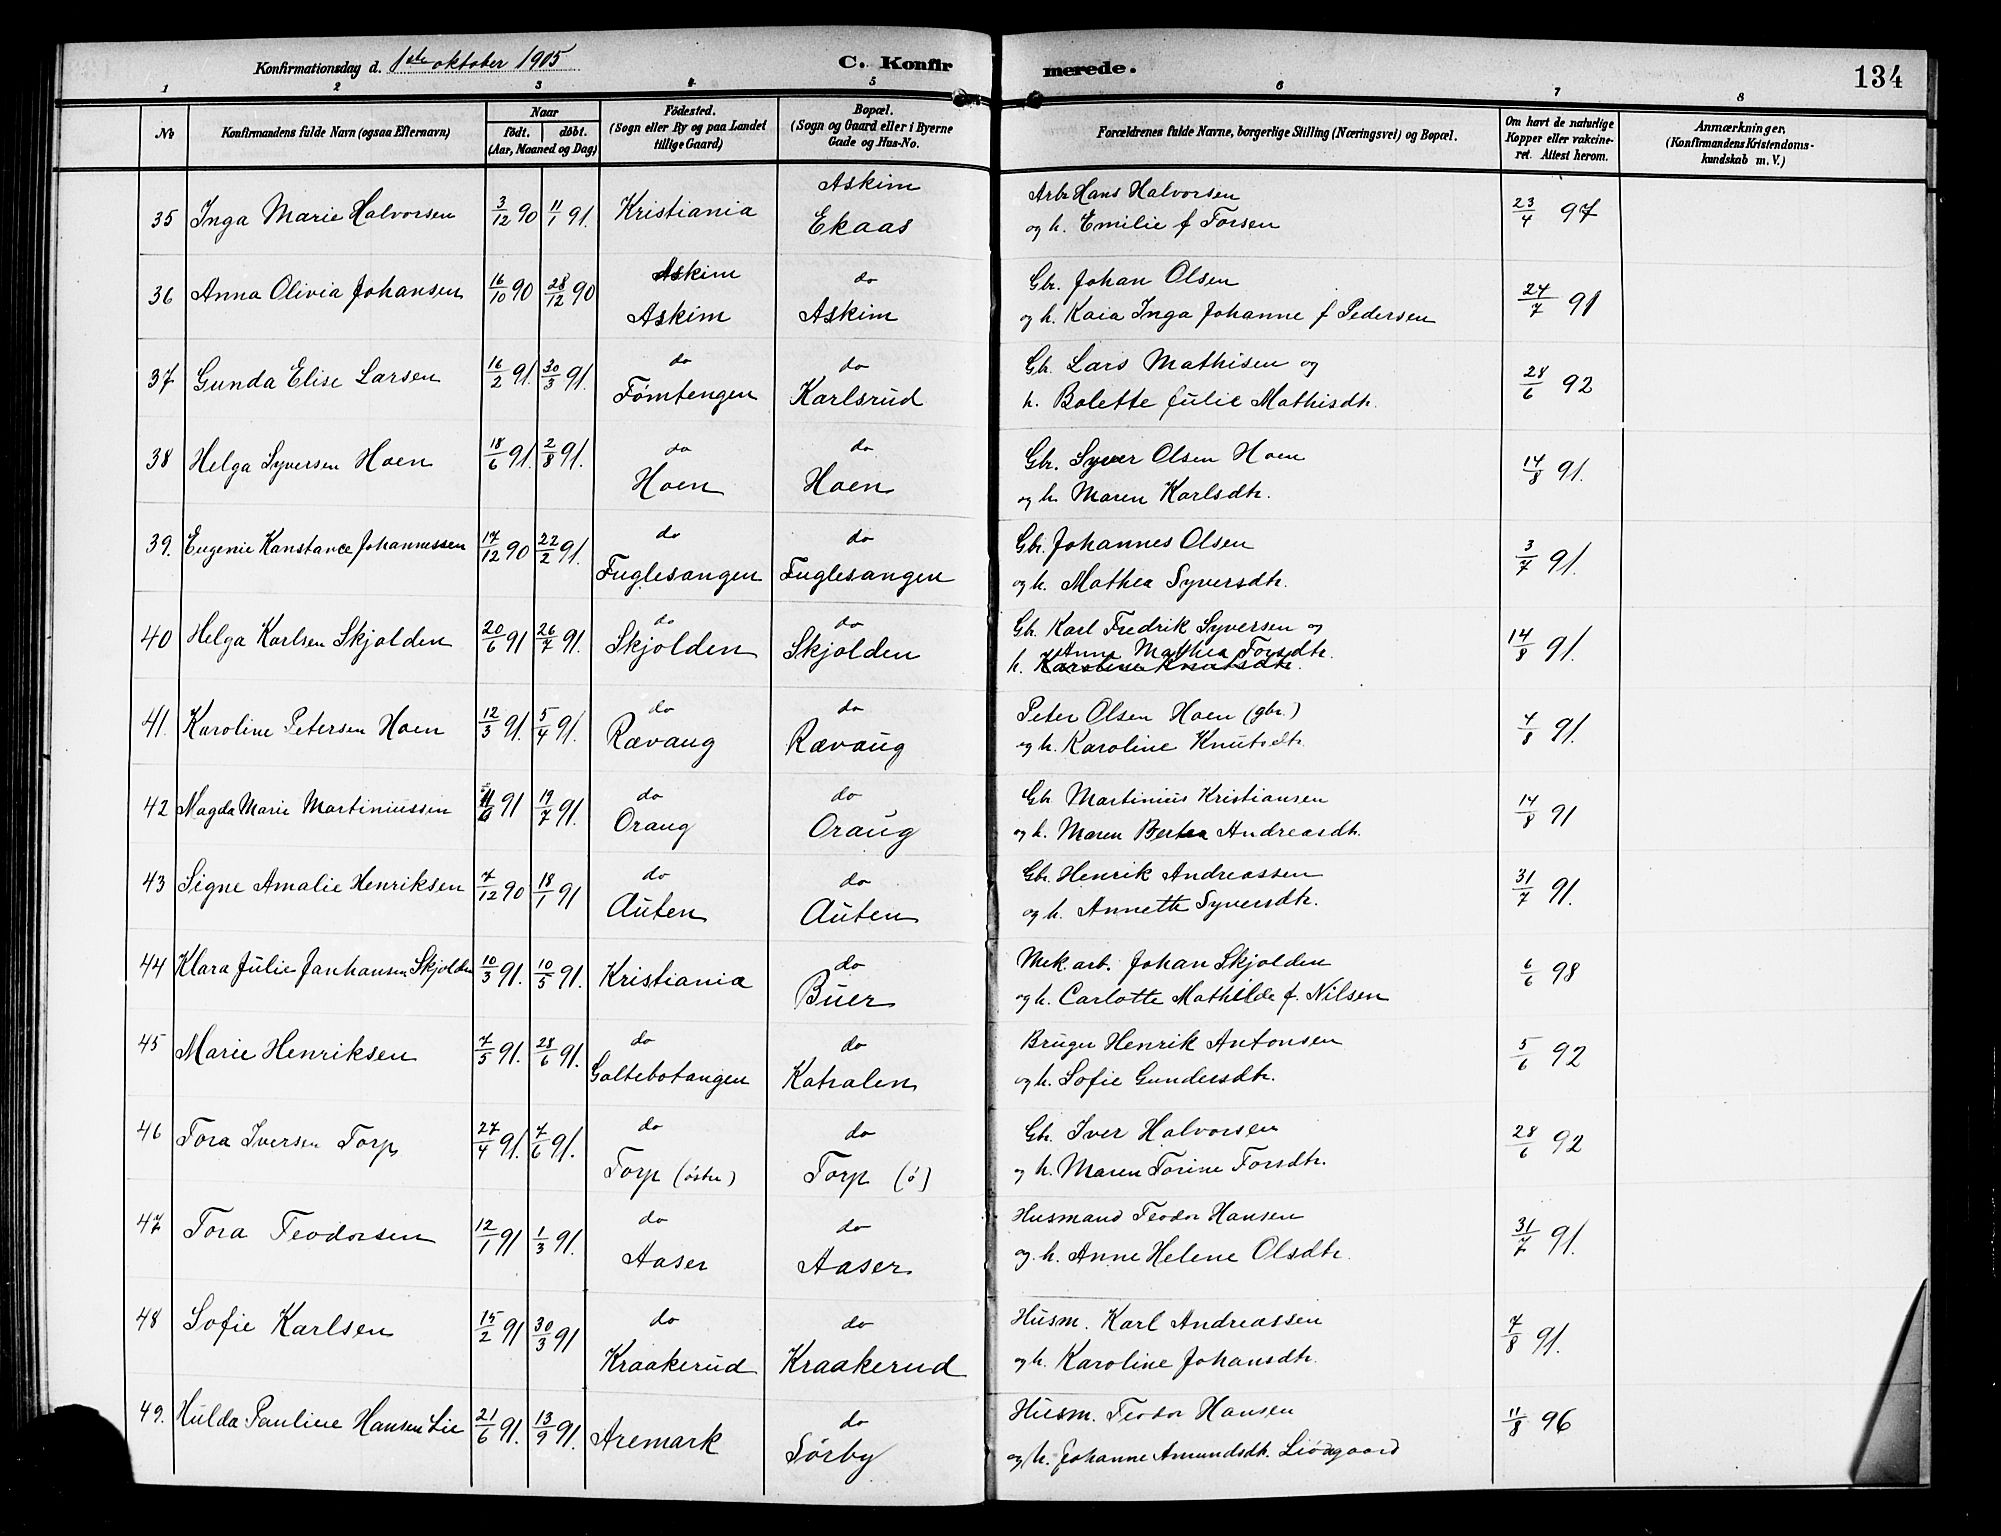 Konfirmationsdag d. 1ste oktober 1905 C. Konfirmerede. 134
1 2 3 4 5 6 7 8
No
Konfirmandens fulde Navn (ogsaa Efternavn)
Naar
födt. döbt.
(Aar, Maaned og Dag)
Födested.
(Sogn eller By og paa Landet
tillige Gaard)
Bopæl.
(Sogn og Gaard eller i Byerne
Gade og Hus-No.
Forældrenes fulde Navne, borgerlige Stilling (Næringsvei) og Bopæl.
Om havt de naturlige
Kopper eller vakcine-
ret. Attest herom.
Anmærkninger.
(Konfirmandens Kristendoms-
kundskab m. V.)
35 Inga Marie Halvorsen 3/12 90 11/1 91. Kristiania Askim Ekaas Arb. Hans Halvorsen 23/4 97
og h. Emilie f Torsen
36 Anna Olivia Johansen 16/10 90 28/12 90 Askim Askim do Askim Gbr. Johan Olsen 24/7 91
og h. Kaia Inga Johanne f Pedersen
37 Gunda Elise Larsen 16/2 91. 30/3 91. do Tømtengen do Karlsrud Gbr. Lars Mathisen og 28/6 92
h. Bolette Julie Mathisdtr.
38 Helga Syversen Hoen 18/6 91. 2/8 91. do Hoen do Hoen Gbr. Syver Olsen Hoen 14/8 91.
og h. Maren Karlsdtr.
39. Eugenie Konstance Johannessen 17/12 90 22/2 91. do Fuglesangen do Fuglesangen Gbr. Johannes Olsen 3/7 91.
og h. Mathea Syversdtr.
40 Helga Karlsen Skjolden 20/6 91 26/7 91. do Skjolden do Skjolden Gbr. Karl Fredrik Syversen og 14/8 91.
Anne Mathea Torsdtr.
h. Karoline Knutsdtr.
41. Karoline Petersen Hoen 12/3 91. 5/4 91. do Rævaug do Rævaug Peter Olsen Hoen (gbr.) 4/8 91.
og h. Karoline Knutsdtr.
42 Magda Marie Martiniussen 91 19/7 91. do Oraug do Oraug Gbr Martinius Kristiansen 14/8 91
og h. Maren Bertea Andreasdtr.
43 Signe Amalie Henriksen 7/12 90 18/1 91 do Auten do Auten Gbr. Henrik Andreassen 31/7 91.
og h. Annette Syversdtr.
44 Klara Julie Janhansen Skjolden 10/3 91. 10/5 91. Kristiania do Buer Mek. arb. Johan Skjolden 6/6 98
og h. Carlotte Mathilde f. Nilsen
45 Marie Henriksen 7/5 91. 28/6 91. do Galtebotangen do Katralen Bruger Henrik Antonsen 5/6 92
og h. Sofie Gundersdtr.
46 Tora Iversen Torp 27/4 91. 7/6 91. do Torp (östre) do Torp (ö) Gbr. Iver Halvorsen 28/6 92
og h. Maren Torine Torsdtr.
47 Tora Teodorsen 12/1 91 1/3 91. do Aaser do Aaser Husmand Teodor Hansen 31/7 91.
og. h. Anne Helene Olsdtr.
48 Sofie Karlsen 15/2 91 30/3 91 do Kraakerud do Kraakerud Husm. Karl Andreassen 7/8 91.
og h. Karoline Johansdtr.
49. Hulda Pauline Hansen Lie 21/6 91. 13/9 91. Aremark do Sörby Husm. Teodor Hansen 11/8 96
og h. Johanne Amundsdtr. Liongaard